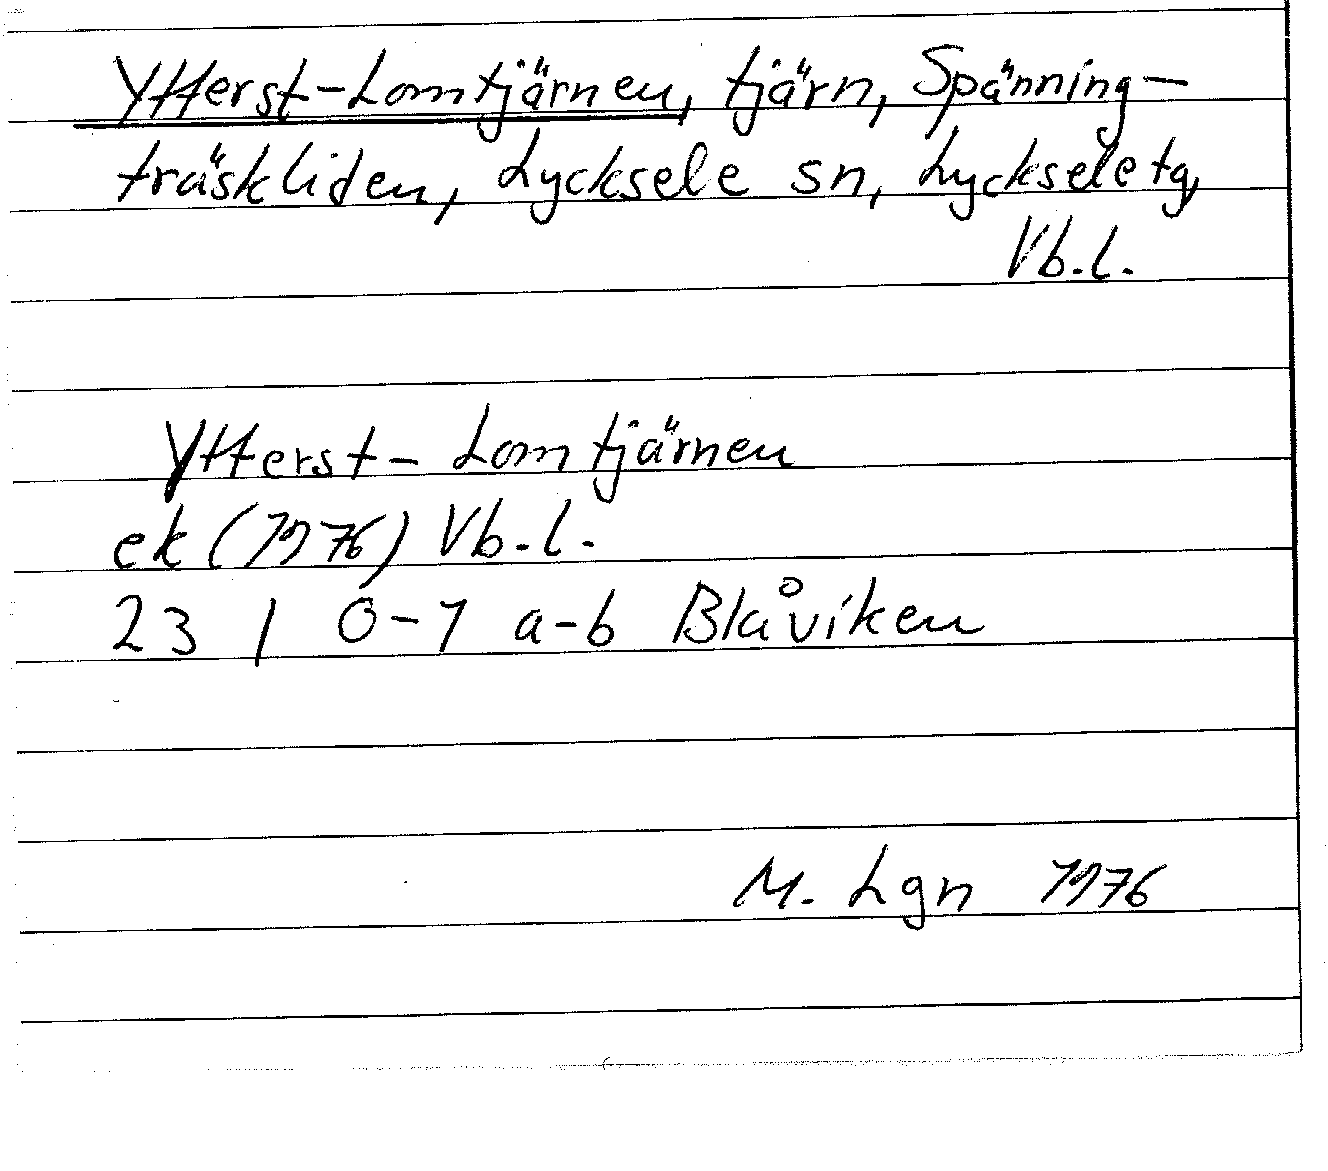 Ytterst-Lomtjärnen, tjärn, Spänning-
träskliden, Lycksele sn, Lycksele tg,
Vb.l.
Ytterst- Lomtjärnen
ek (1976) Vb.l.
23 I 0-1 a-b Blåviken
M. Lgn 1976